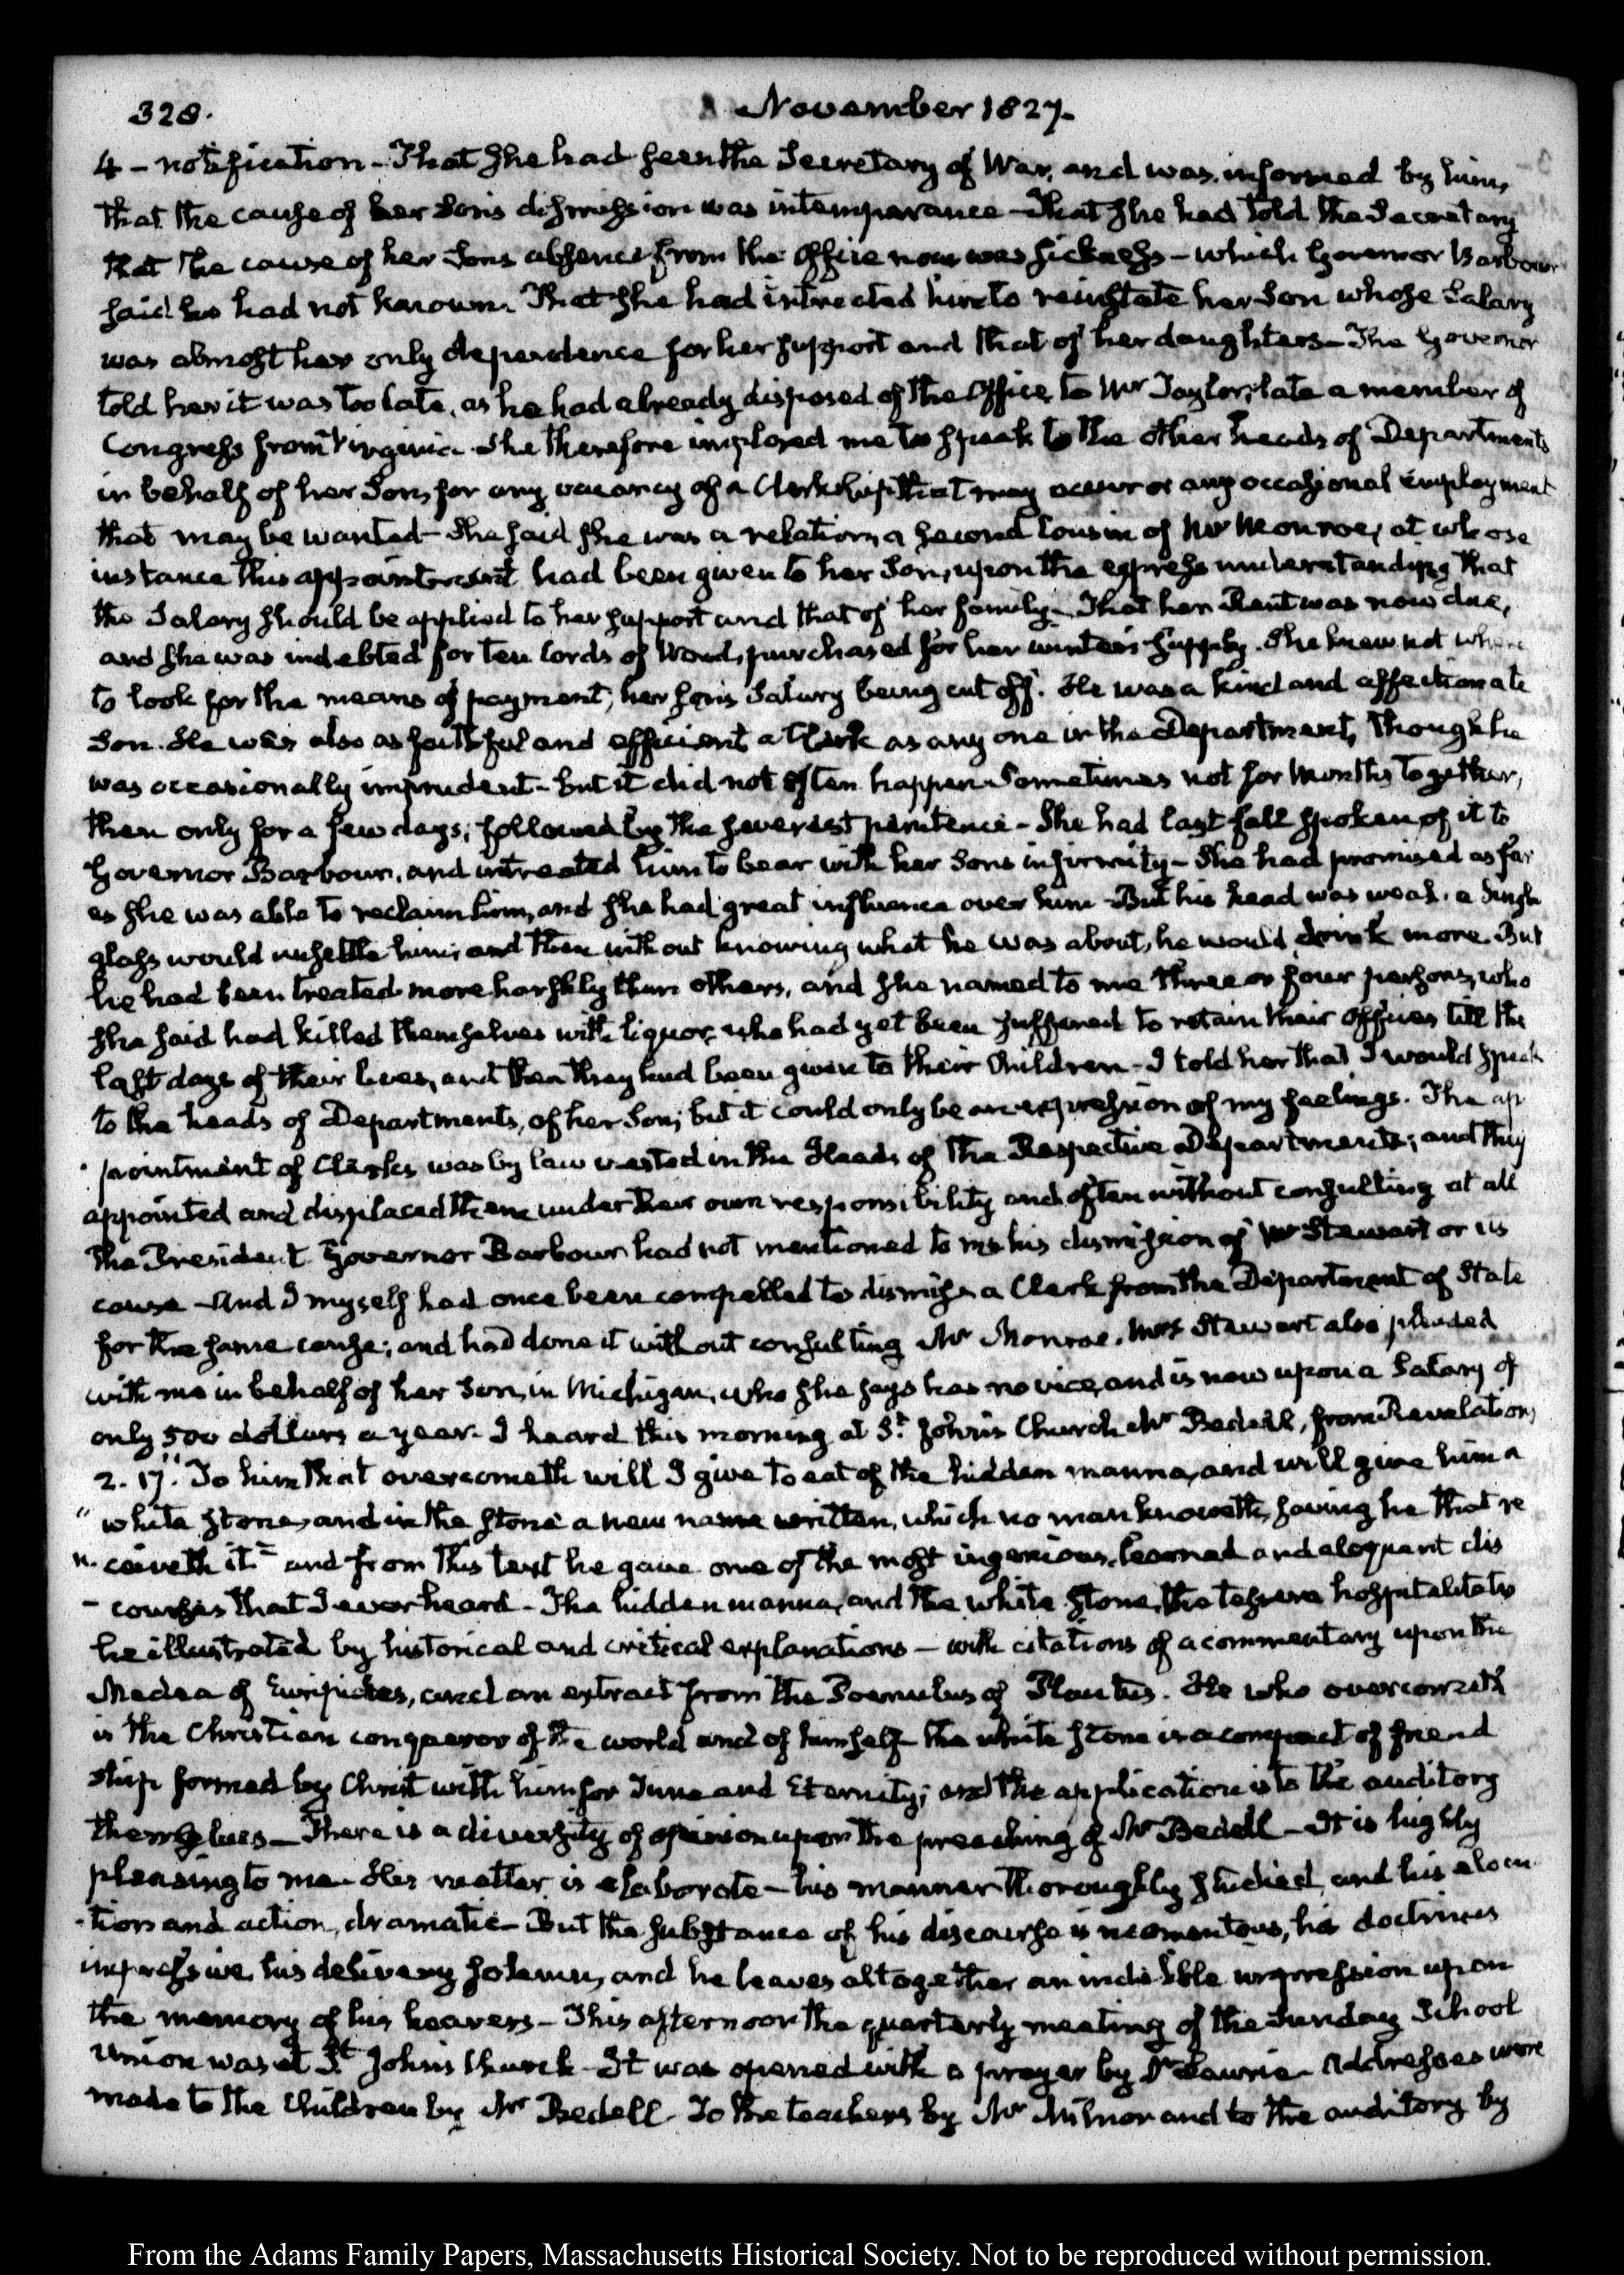 328. November 1827.
4 - notification - That she had seen the Secretary of War, and was informed by him,
that the cause of her Son's dismission was intemperance - That she had told the Secretary
that the cause of her Sons absence from the Office now was sickness - which Governor Barbour
said he had not known. That she had intreated him to reinstate her Son whose Salary
was almost her only dependence for her support and that of her daughters - The Governor
told her it was too late, as he had already disposed of the Office to Mr Taylor, late a member of
Congress from Virginia. She therefore implored me to speak to the other heads of Departments
in behalf of her Son, for any vacancy of a Clerkship that may occur or any occasional employment
that may be wanted - She said she was a relation, a second Cousin of Mr Monroe, at whose
instance this appointment had been given to her Son, upon the express understanding that
the Salary should be applied to her support and that of her family - That her Rent was now due,
and she was indebted for ten Cords of Wood, purchased for her winter's supply. She knew not where
to look for the means of payment, her son's Salary being cut off. He was a kind and affectionate
Son. He was also as faithful and efficient a Clerk as any one in the Department, though he
was occasionally imprudent - but it did not often happen - Sometimes not for Months together,
then only for a few days; followed by the severest penitence - She had last fall spoken of it to
Governor Barbour, and intreated him to bear with her Sons infirmity - She had promised as far
as she was able to reclaim him, and she had great influence over him - But his head was weak. a single
glass would unsettle him; and then without knowing what he was about, he would drink more. But
he had been treated more harshly than others, and she named to me three or four persons, who
she said had killed themselves with liquor, who had yet been suffered to retain their Offices till the
last days of their lives, and then they had been given to their Children - I told her that I would speak
to the heads of Departments, of her Son; but it could only be an expression of my feelings. The ap
pointment of Clerks was by law vested in the Heads of the Respective Departments; and they
appointed and displaced them under their own responsibility and often without consulting at all
the President. Governor Barbour had not mentioned to me his dismission of Mr Stewart or its
cause - And I myself had once been compelled to dismiss a Clerk from the Department of State
for the same cause; and had done it without consulting Mr Monroe. Mrs Stewart also pleaded
with me in behalf of her Son, in Michigan, who she says has no vice, and is now upon a Salary of
only 500 dollars a year. I heard this morning at St. John's Church Mr Bedell, from Revelation,
2. 17. "To him that overcometh will I give to eat of the hidden manna, and will give him a
" white stone, and in the stone a new name written, which no man knoweth, saving he that re
" ceiveth it" and from this text he gave one of the most ingenious, learned and eloquent dis
- courses that I ever heard - The hidden manna, and the white stone, the tessera hospitalitatis
he illustrated by historical and critical explanations - with citations of a commentary upon the
Medea of Euripides, and an extract from the Poenulus of Plautus. He who overcometh
is the Christian conqueror of the world and of himself - the white stone is a compact of friend
ship formed by Christ with him for Time and Eternity; and the application is to the auditory
themselves - There is a diversity of opinion upon the preaching of Mr Bedell - It is highly
pleasing to me - His matter is elaborate - his manner thoroughly studied, and his elocu
-tion and action, dramatic - But the substance of his discourse is momentous, his doctrines
impressive, his delivery solemn, and he leaves altogether an indelible impression upon
the memory of his hearers - This afternoon the quarterly meeting of the Sunday School
Union was at St. John's Church - It was opened with a prayer by Dr Laurie - Addresses were
made to the Children by Mr Bedell - To the teachers by Mr Milnor and to the auditory by
From the Adams Family Papers, Massachusetts Historical Society. Not to be reproduced without permission.